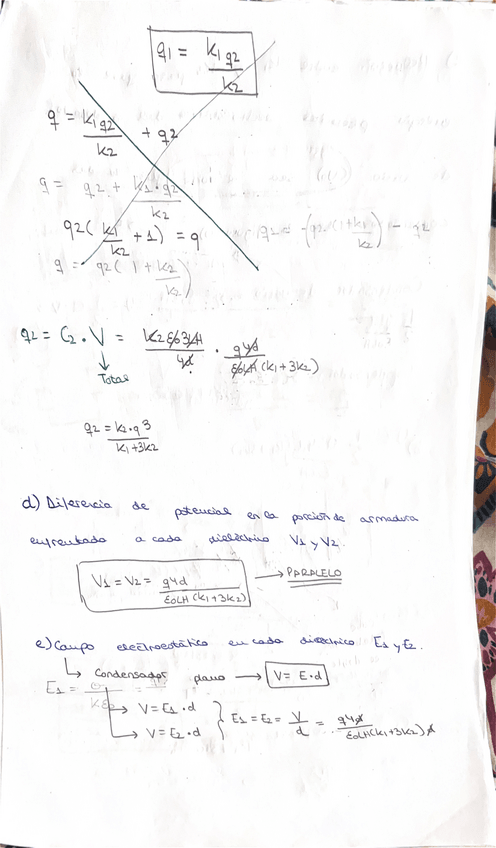 q1 = k1 q2 / k2
q = k1 q2 / k2 + q2
q = q2 + k1 · q2 / k2
q2 ( k1 / k2 + 1 ) = q
q = q2 ( 1 + k2 / k2 )
q2 = C2 · V = k2 ε0 3LH / 4d · q4d / ε0LH (k1 + 3k2)
Total
q2 = k2 · q 3 / k1 + 3k2
d) Diferencia de potencial en la porción de armadura
enfrentado a cada dieléctrico V1 y V2.
V1 = V2 = q4d / ε0LH (k1 + 3k2) → PARALELO
e) Campo electrostático en cada dieléctrico E1 y E2.
↳ Condensador plano → V = E · d
E1 =
→ V = E1 · d
→ V = E2 · d } E1 = E2 = V / d = q4d / ε0LH(k1 + 3k2) d